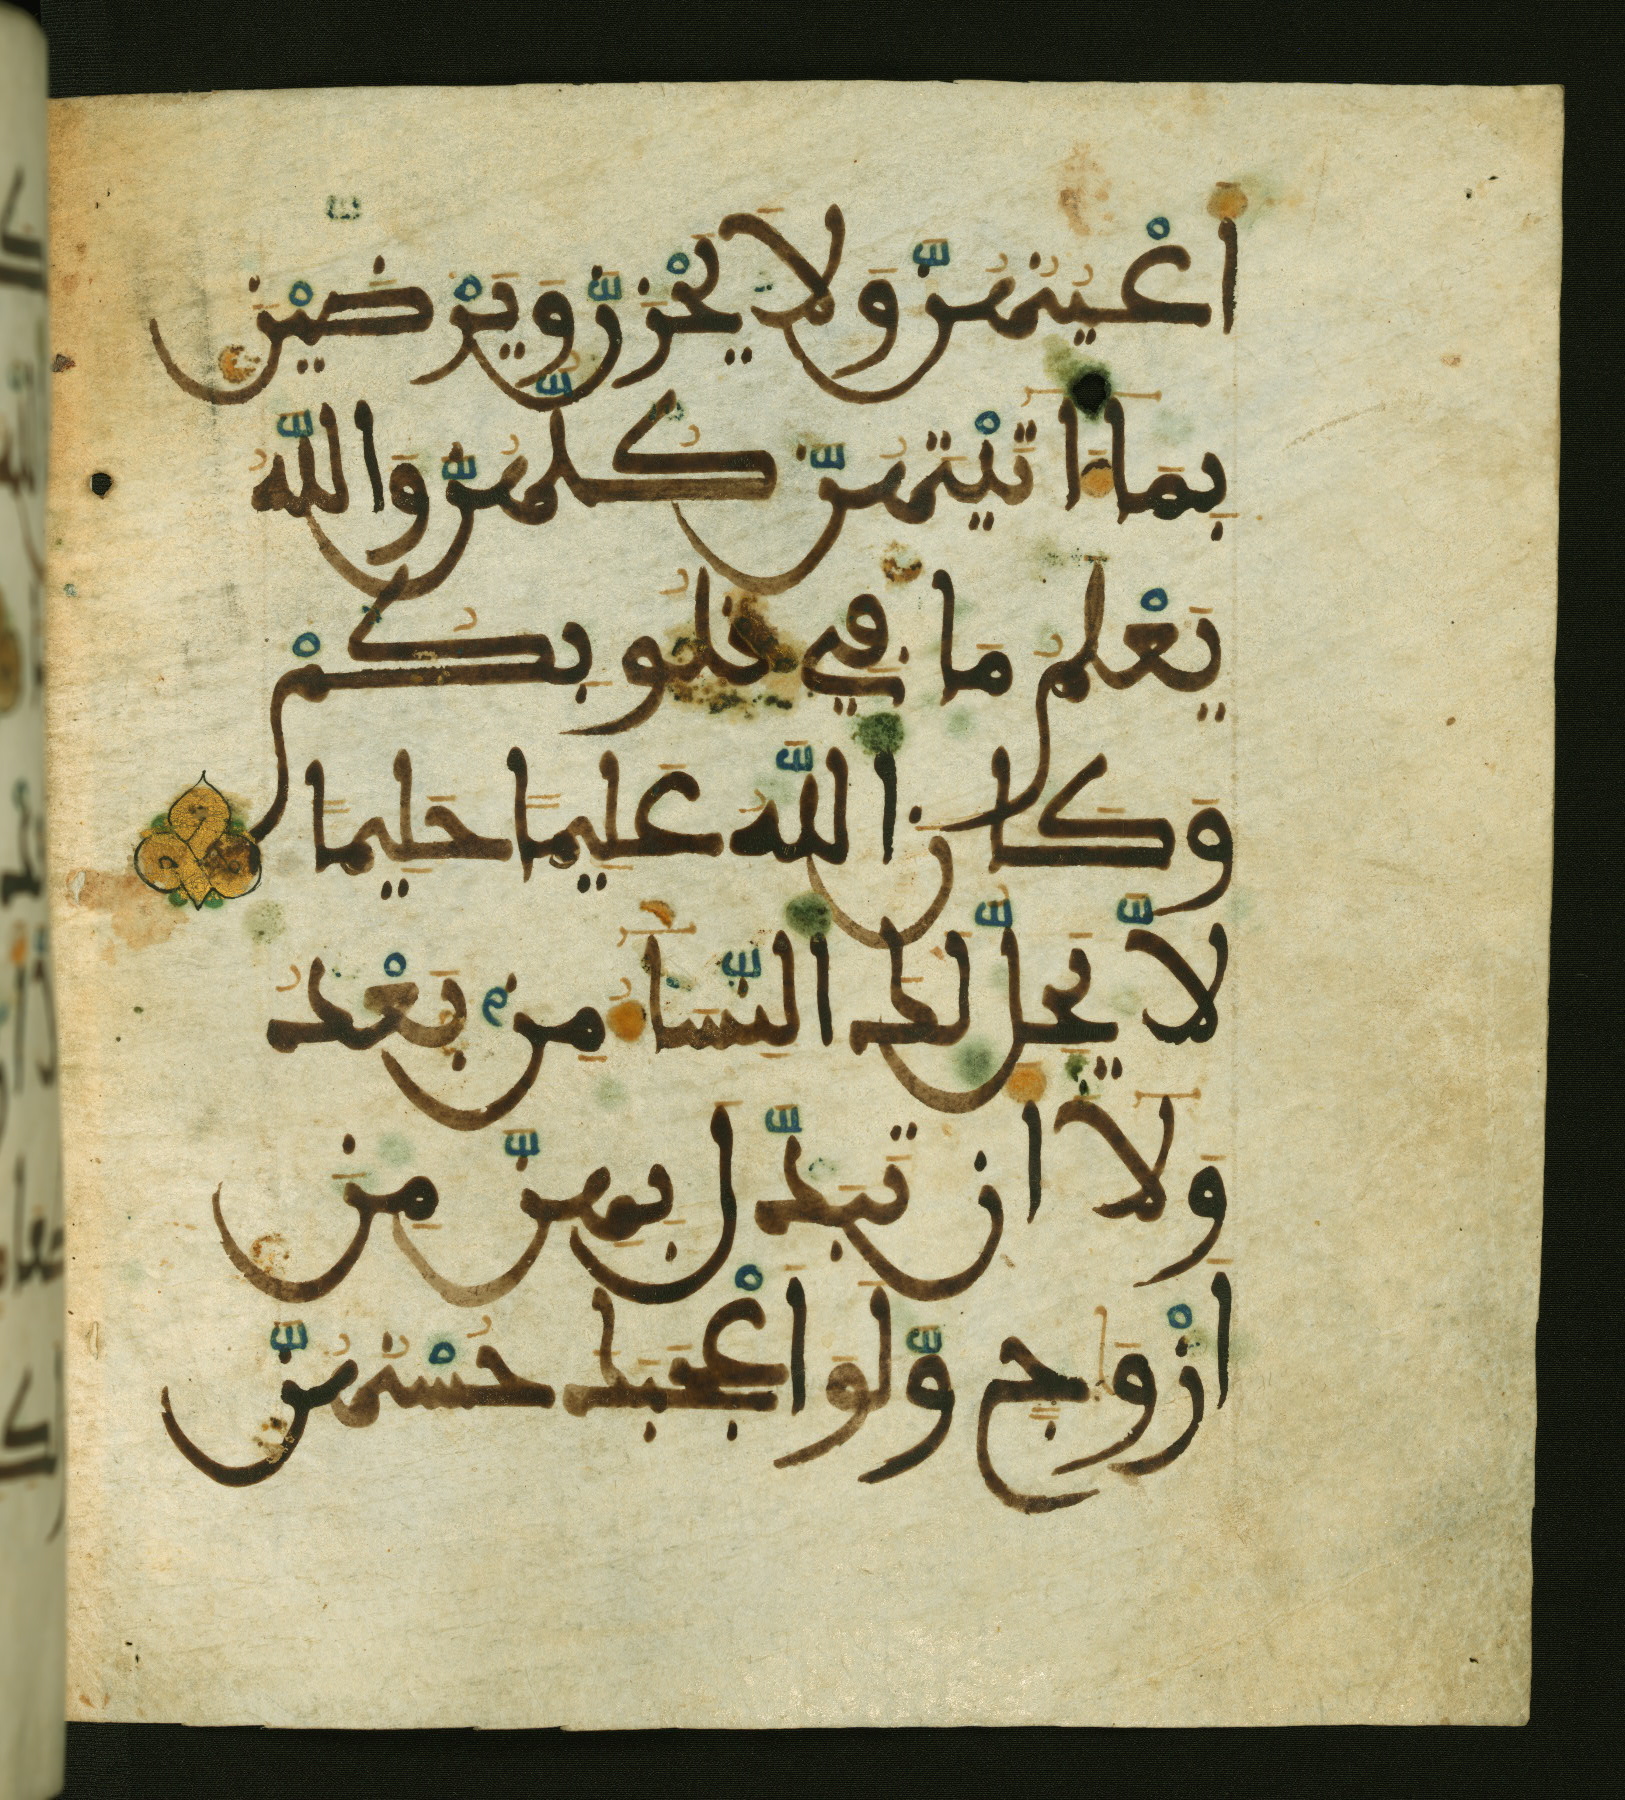 أَعْيُنُهُنَّ وَلَا يَحْزَنَّ وَيَرْضَيْنَ
بِمَا ءَاتَيْتَهُنَّ كُلُّهُنَّ وَاللَّهُ
يَعْلَمُ مَا فِي قُلُوبِكُمْ
وَكَانَ اللَّهُ عَلِيمًا حَلِيمًا
لَّا يَحِلُّ لَكَ النِّسَاءُ مِنْ بَعْدُ
وَلَا أَن تَبَدَّلَ بِهِنَّ مِنَ
أَزْوَاجٍ وَّلَوَ اعْجَبَكَ حُسْنُهُنَّ